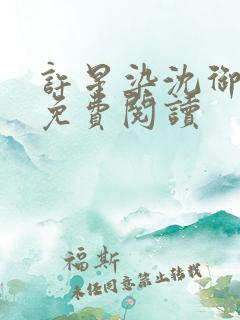 許星染沈御
免費閱讀
福斯
未经同意禁止转载